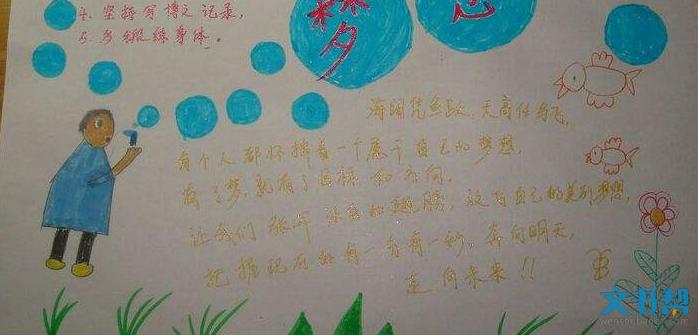 4. 坚持写博文记录,
5. 多锻练身体。
梦想
海阔凭鱼跃,天高任鸟飞,
有个人都怀揣着一个属于自己的梦想,
有了梦,就有了目标和方向。
让我们张开 自由的翅膀,放飞自己的美丽梦想,
把握现在的每一分每一秒,奔向明天,
走向未来!!
文书帮